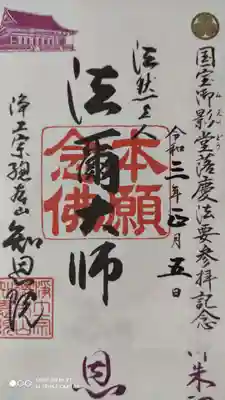 国宝御影堂落慶法要参拝記念
みえいどう
令和三年正月五日
法然上人
法爾大師
本願
念佛
浄土宗総本山
知恩院
恩